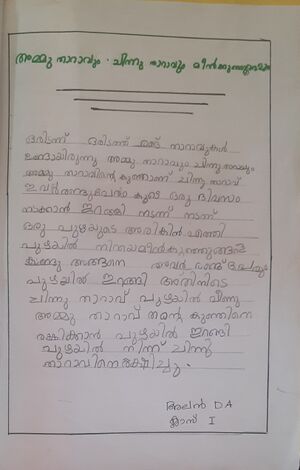 അമ്മു താറാവും ചിന്നു താറാവും മീൻകുഞ്ഞുങ്ങളും
ഒരിടത്ത് ഒരിടത്ത് രണ്ട് താറാവുകൾ
ഉണ്ടായിരുന്നു അമ്മു താറാവും ചിന്നുതാറാവും
അമ്മു താറാവിന്റെ കുഞ്ഞാണ് ചിന്നു താറാവ്
ഇവർ രണ്ടുപേരും കൂടെ ഒരു ദിവസം
നടക്കാൻ ഇറങ്ങി നടന്ന് നടന്ന്
ഒരു പുഴയുടെ അരികിൽ എത്തി
പുഴയിൽ നിറയെ മീൻകുഞ്ഞുങ്ങളെ
കണ്ടു അങ്ങനെ അവർ രണ്ട്
പുഴയിൽ ഇറങ്ങി അതിനിടെ
ചിന്നു താറാവ് പുഴയിൽ വീണു
അമ്മു താറാവ് തന്റെ കുഞ്ഞിനെ
രക്ഷിക്കാൻ പുഴയിൽ ഇറങ്ങി
പുഴയിൽ നിന്ന് ചിന്നു
താറാവിനെ രക്ഷിച്ചു.
അലൻ D A
ക്ലാസ് I